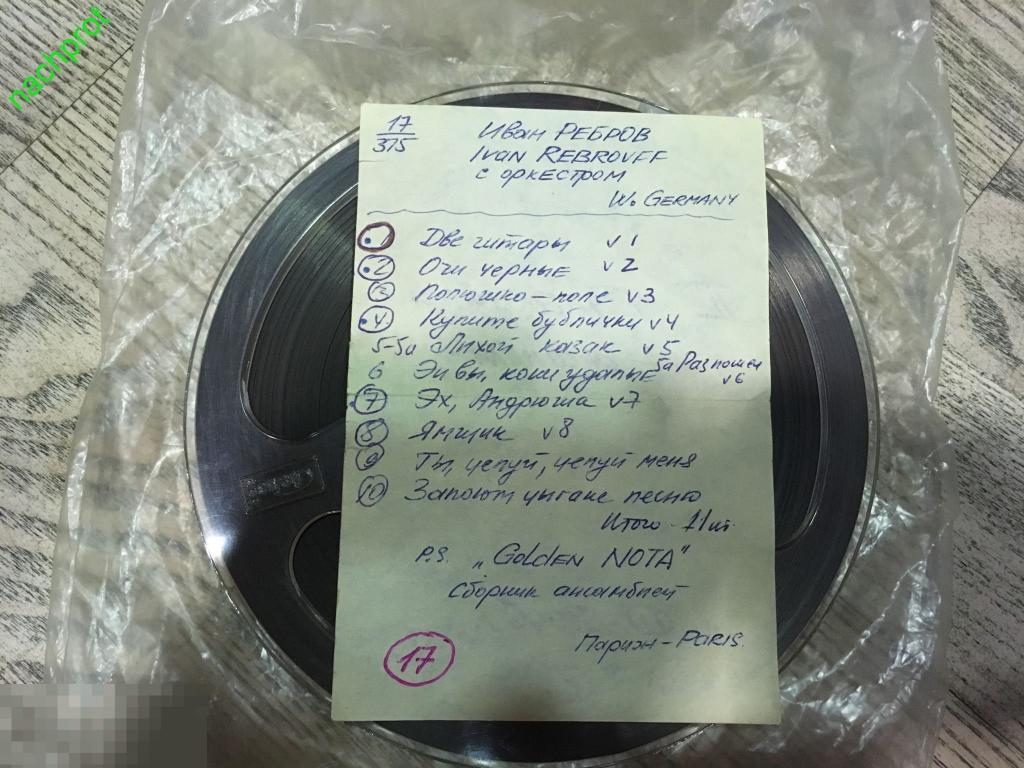 nachprot
17
315
Иван РЕБРОВ
Ivan REBROVFF
с оркестром
W. GERMANY
1 Две гитары v 1
2 Очи черные v 2
3 Полюшко-поле v3
4 Купите бублички v4
5-5а Лихой казак v5
6 Эй вы, кони удалые 5а Разпошел v6
7 Эх, Андрюша v7
8 Ямщик v8
9 Ты, целуй, целуй меня
10 Запоют цыгане песню
Итого - 11 шт.
P.S. „Golden NOTA"
Сборник ансамблей
Париж - PARIS.
17